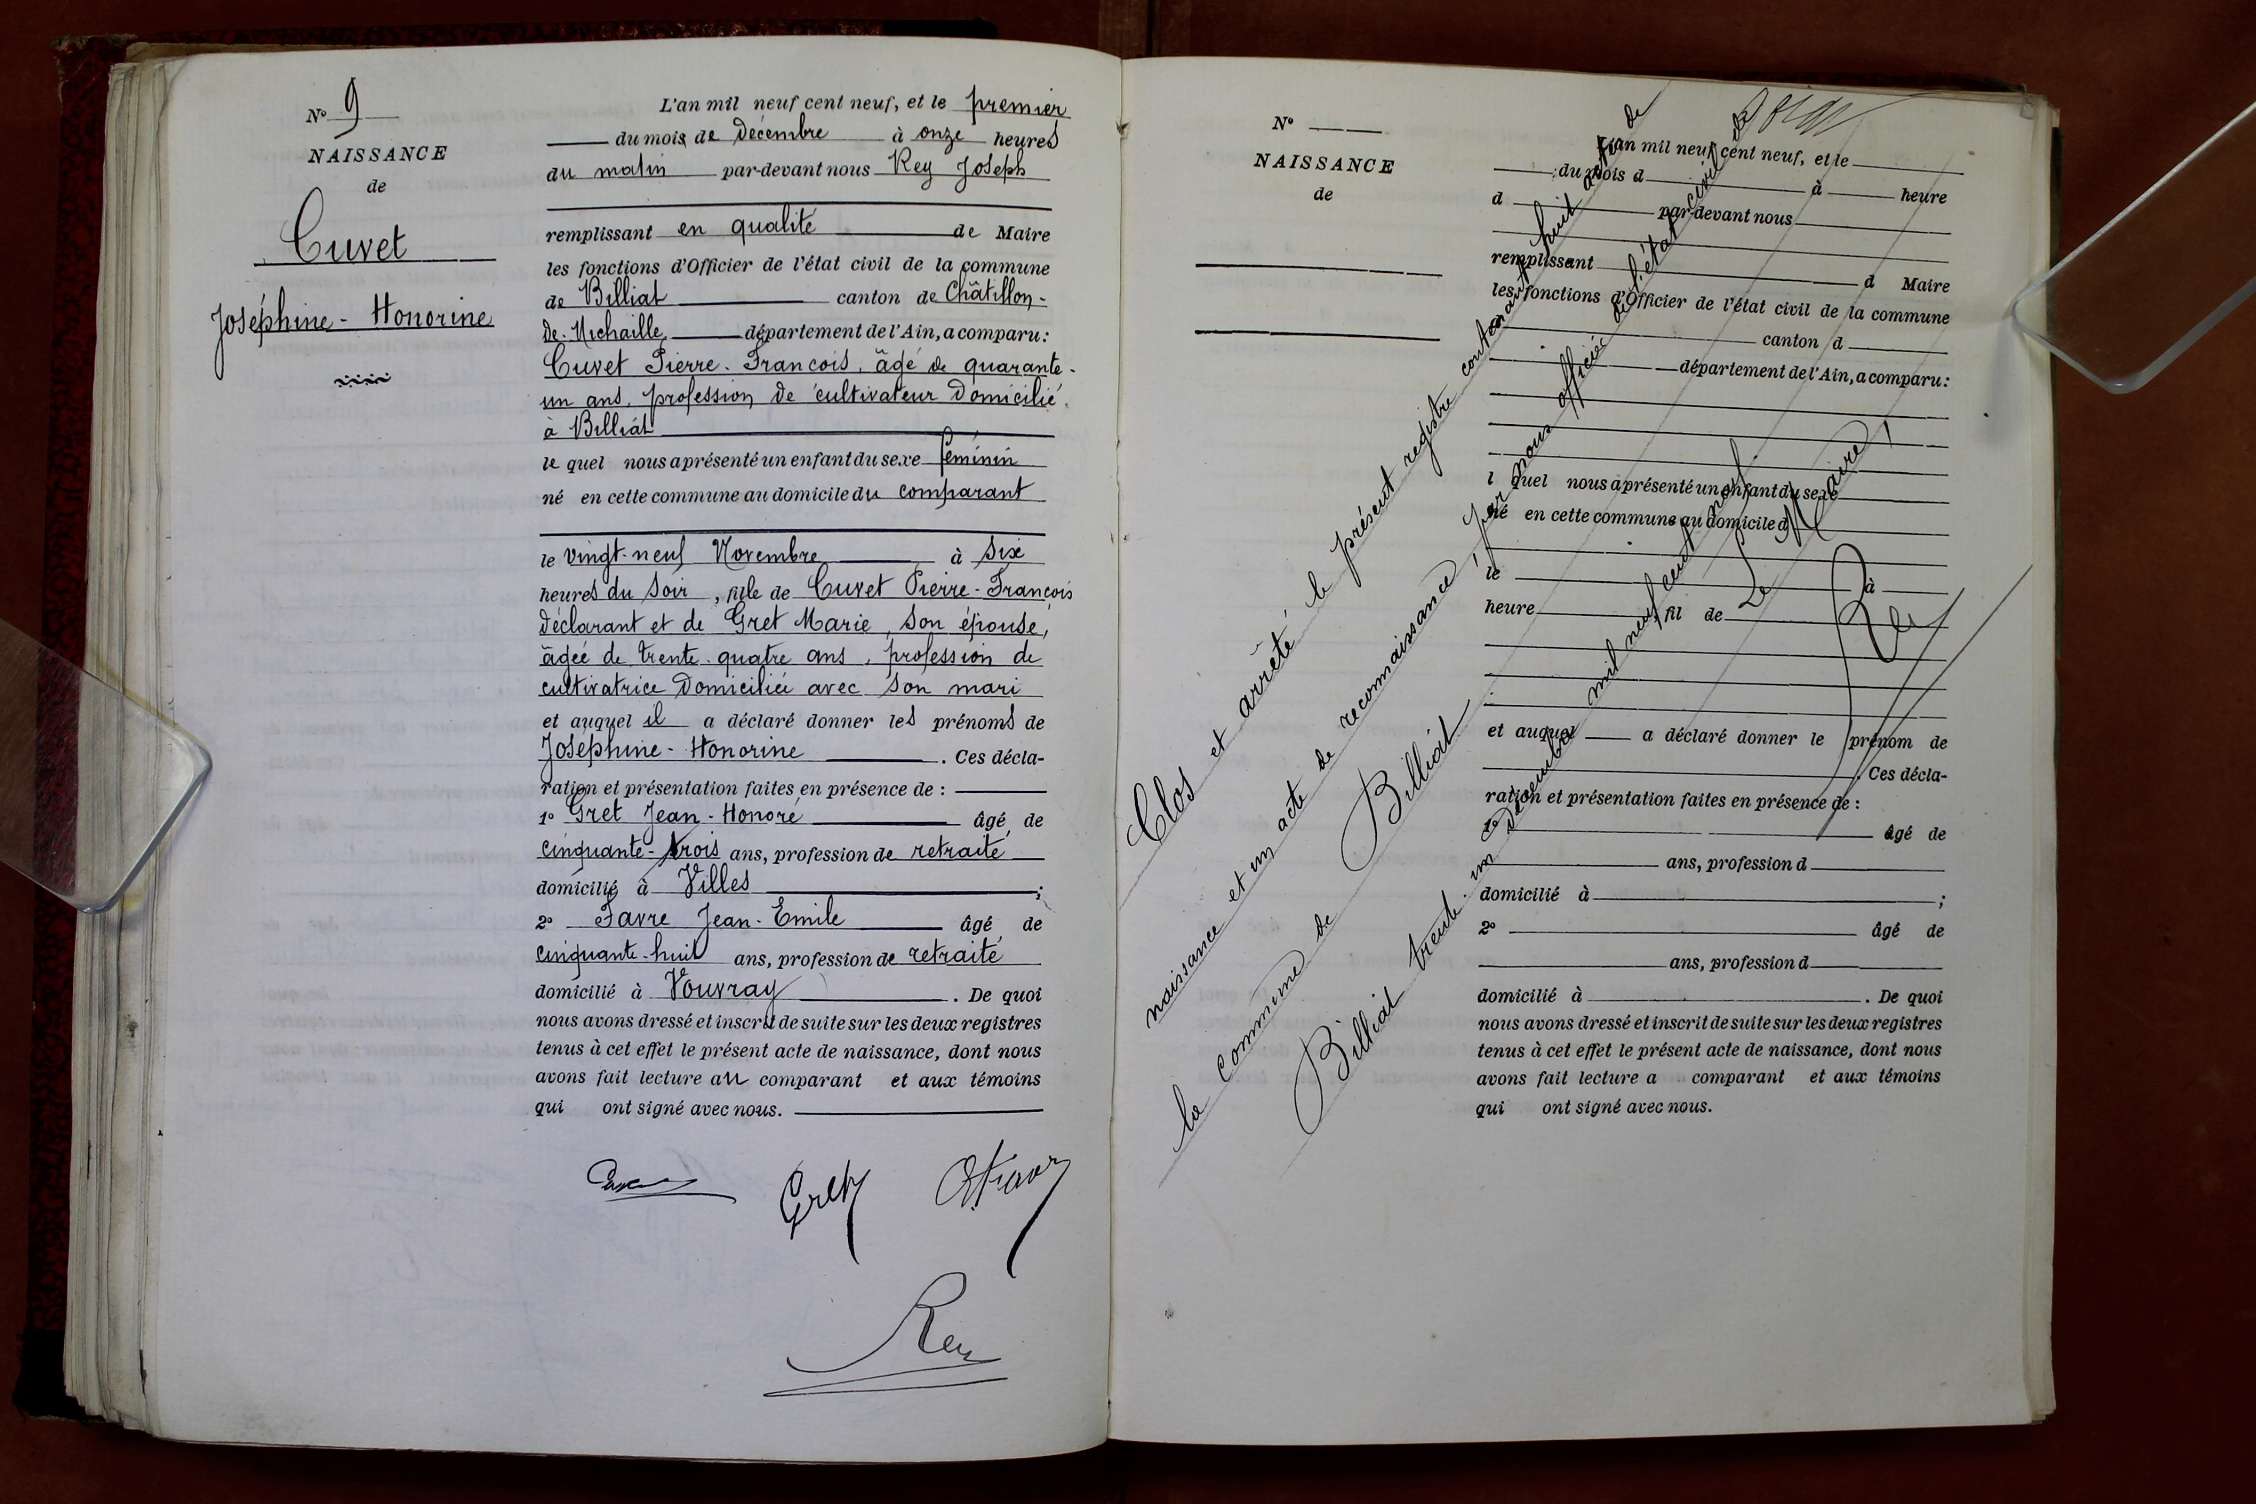 N° 9
NAISSANCE
de
Cuvet
Joséphine - Honorine
L'an mil neuf cent neuf, et le premier
du mois de décembre à onze heures
du matin par-devant nous Rey Joseph
remplissant en qualité de Maire
les fonctions d'Officier de l'état civil de la commune
de Billiat canton de Châtillon-
de-Michaille département de l'Ain, a comparu:
Cuvet Pierre-François, âgé de quarante-
un ans, profession de cultivateur domicilié
à Billiat
le quel nous a présenté un enfant du sexe féminin
né en cette commune au domicile du comparant
le vingt-neuf Novembre à six
heures du soir, fille de Cuvet Pierre-François
déclarant et de Gret Marie, son épouse,
âgée de trente-quatre ans, profession de
cultivatrice domiciliée avec son mari
et auquel il a déclaré donner les prénoms de
Joséphine-Honorine. Ces décla-
ration et présentation faites en présence de :
1° Gret Jean-Honoré âgé de
cinquante-trois ans, profession de retraité
domicilié à Villes ;
2° Favre Jean-Emile âgé de
cinquante-huit ans, profession de retraité
domicilié à Vouvray. De quoi
nous avons dressé et inscrit de suite sur les deux registres
tenus à cet effet le présent acte de naissance, dont nous
avons fait lecture au comparant et aux témoins
qui ont signé avec nous.
Gret
Rey
N°
NAISSANCE
de
L'an mil neuf cent neuf, et le
du mois d à heure
d par-devant nous
remplissant d Maire
les fonctions d'Officier de l'état civil de la commune
canton d
département de l'Ain, a comparu:
l quel nous a présenté un enfant du sexe
né en cette commune au domicile d
le à
heure fil de
et auquel a déclaré donner le prénom de
. Ces décla-
ration et présentation faites en présence de :
1° âgé de
ans, profession d
domicilié à ;
2° âgé de
ans, profession d
domicilié à . De quoi
nous avons dressé et inscrit de suite sur les deux registres
tenus à cet effet le présent acte de naissance, dont nous
avons fait lecture a comparant et aux témoins
qui ont signé avec nous.
Clos et arrêté le présent registre contenant huit actes de
naissance et un acte de reconnaissance, par nous officier de l'état civil de
la commune de Billiat
Billiat trente-un décembre mil neuf cent neuf.
Le Maire,
Rey